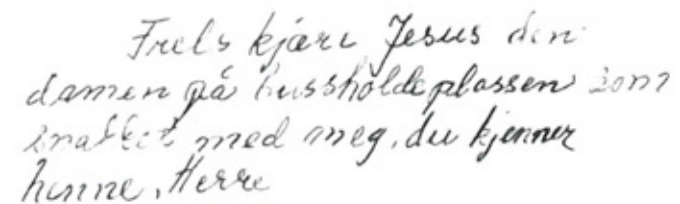 Frels kjære Jesus den
damen på bussholdeplassen som
snakket med meg, du kjenner
henne, Herre